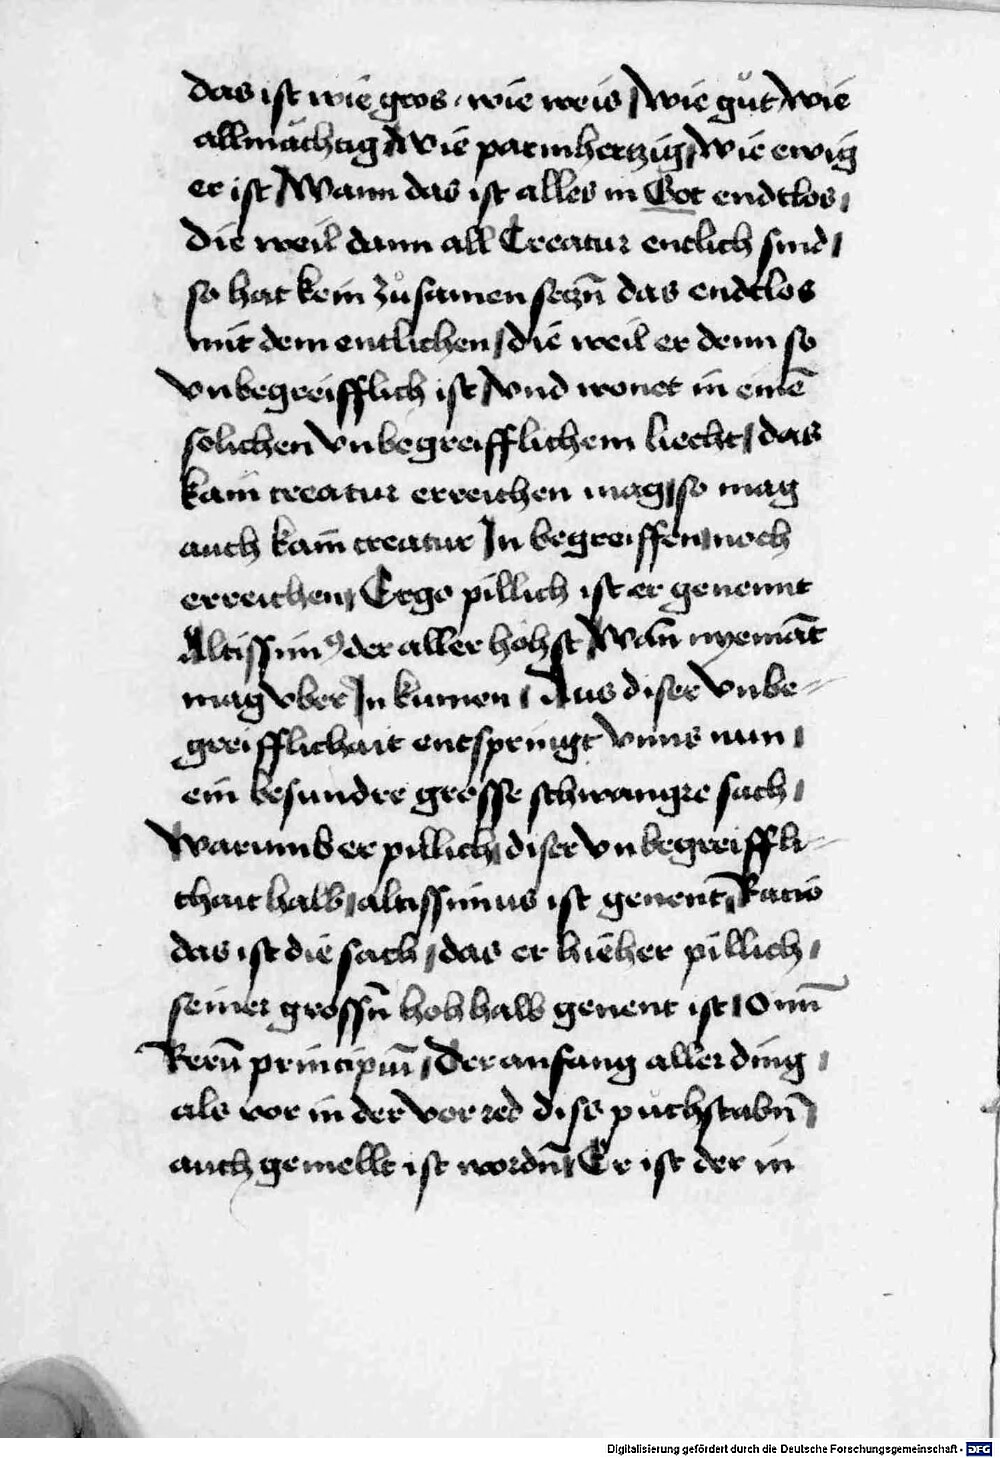 das ist wie gros / wie weis / wie gůt / wie
allmächtig / Wie parmhertzig / Wie ewig
er ist / Wann das ist alles in Got endtlos /
Die weil dann all Creatur entlich sind /
so hat kein zůsamen seczn̄ das endtlos
mit dem entlichen / die weil er denn so
vnbegreifflich ist / vnd wonet in einē
solichen vnbegreifflichem liecht / das
kain creatur erreichen mag / so mag
auch kain creatur In begreiffen / noch
erreichen / Ergo pillich ist er genennt
Altissimꝰ der aller höhst / Wan̄ nyemāt
mag vber In kumen / Aus diser vnbe-
greifflichait entspringt vnns nun /
ein besundre grosse schwangre sach /
Warumb er pillich / diser vnbegreiffli-
chait halb / altissimus ist genent̄ / Racio
das ist die sach / das er hieher pillich /
seiner grossn̄ hoh halb genent ist / Omn̄
Rerū principiū / Der anfang aller ding /
als vor in der vorred diss půchstabn̄ /
auch gemellt ist wordn̄ / Er ist der in
Digitalisierung gefördert durch die Deutsche Forschungsgemeinschaft - DFG